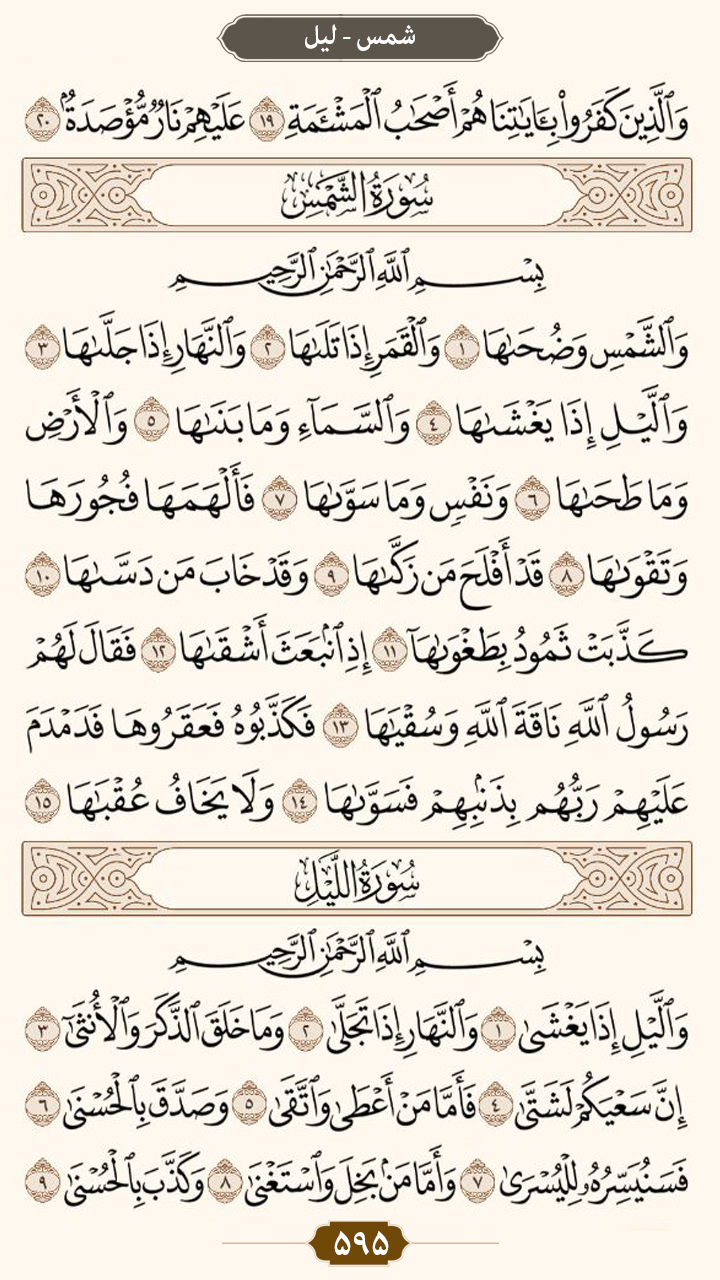 شمس - لیل
وَٱلَّذِينَ كَفَرُواْ بِـَٔايَٰتِنَا هُمۡ أَصۡحَٰبُ ٱلۡمَشۡـَٔمَةِ ١٩ عَلَيۡهِمۡ نَارٞ مُّؤۡصَدَةُۢ ٢٠
سُورَةُ الشَّمۡسِ
بِسۡمِ ٱللَّهِ ٱلرَّحۡمَٰنِ ٱلرَّحِيمِ
وَٱلشَّمۡسِ وَضُحَىٰهَا ١ وَٱلۡقَمَرِ إِذَا تَلَىٰهَا ٢ وَٱلنَّهَارِ إِذَا جَلَّىٰهَا ٣
وَٱلَّيۡلِ إِذَا يَغۡشَىٰهَا ٤ وَٱلسَّمَآءِ وَمَا بَنَىٰهَا ٥ وَٱلۡأَرۡضِ
وَمَا طَحَىٰهَا ٦ وَنَفۡسٖ وَمَا سَوَّىٰهَا ٧ فَأَلۡهَمَهَا فُجُورَهَا
وَتَقۡوَىٰهَا ٨ قَدۡ أَفۡلَحَ مَن زَكَّىٰهَا ٩ وَقَدۡ خَابَ مَن دَسَّىٰهَا ١٠
كَذَّبَتۡ ثَمُودُ بِطَغۡوَىٰهَآ ١١ إِذِ ٱنۢبَعَثَ أَشۡقَىٰهَا ١٢ فَقَالَ لَهُمۡ
رَسُولُ ٱللَّهِ نَاقَةَ ٱللَّهِ وَسُقۡيَٰهَا ١٣ فَكَذَّبُوهُ فَعَقَرُوهَا فَدَمۡدَمَ
عَلَيۡهِمۡ رَبُّهُم بِذَنۢبِهِمۡ فَسَوَّىٰهَا ١٤ وَلَا يَخَافُ عُقۡبَٰهَا ١٥
سُورَةُ اللَّيۡلِ
بِسۡمِ ٱللَّهِ ٱلرَّحۡمَٰنِ ٱلرَّحِيمِ
وَٱلَّيۡلِ إِذَا يَغۡشَىٰ ١ وَٱلنَّهَارِ إِذَا تَجَلَّىٰ ٢ وَمَا خَلَقَ ٱلذَّكَرَ وَٱلۡأُنثَىٰٓ ٣
إِنَّ سَعۡيَكُمۡ لَشَتَّىٰ ٤ فَأَمَّا مَنۡ أَعۡطَىٰ وَٱتَّقَىٰ ٥ وَصَدَّقَ بِٱلۡحُسۡنَىٰ ٦
فَسَنُيَسِّرُهُۥ لِلۡيُسۡرَىٰ ٧ وَأَمَّا مَنۢ بَخِلَ وَٱسۡتَغۡنَىٰ ٨ وَكَذَّبَ بِٱلۡحُسۡنَىٰ ٩
۵۹۵